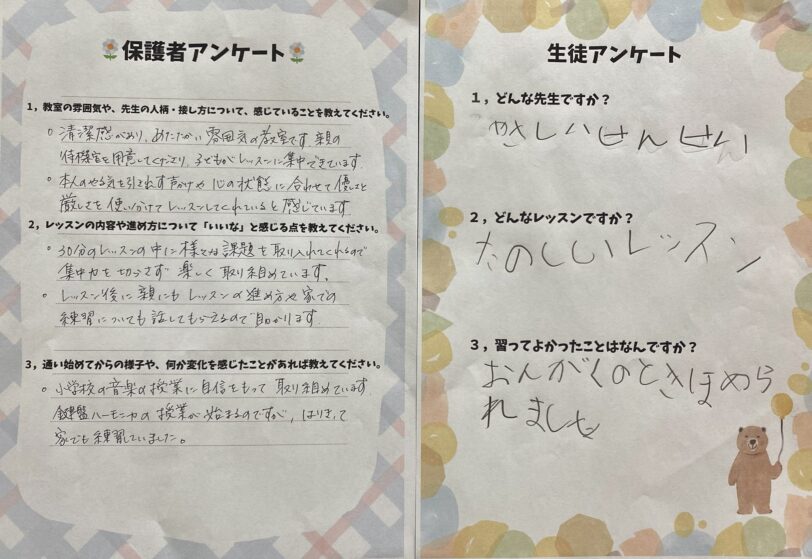 保護者アンケート
1，教室の雰囲気や、先生の人柄・接し方について、感じていることを教えてください。
○ 清潔感があり、あたたかい雰囲気の教室です。親の
待機室を用意してくださり、子どもがレッスンに集中できています
○ 本人のやる気を引き出す声かけや心の状態に合わせて優しさと
厳しさを使いわけてレッスンしてくれていると感じています
2，レッスンの内容や進め方について「いいな」と感じる点を教えてください。
○ 30分のレッスンの中に様々な課題を取り入れてくれるので
集中力を切らさず楽しく取り組めています。
○ レッスン後に親にもレッスンの進め方や家での
練習についても話してもらえるので助かります。
3，通い始めてからの様子や、何か変化を感じたことがあれば教えてください。
○ 小学校の音楽の授業に自信をもって取り組めています
鍵盤ハーモニカの授業が始まるのですが、はりきって
家でも練習していました。
生徒アンケート
1，どんな先生ですか？
やさしいせんせい
2，どんなレッスンですか？
たのしいレッスン
3，習ってよかったことはなんですか？
おんがくのときほめら
れました